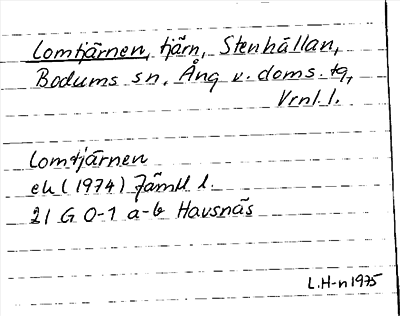 Lomtjärnen, tjärn, Stenhållan,
Bodums sn, Ång v. doms. tg,
Vrnl. l.
Lomtjärnen
ek (1974) Jämtl l.
21 G 0-1 a-b Havsnäs
L.H-n 1975